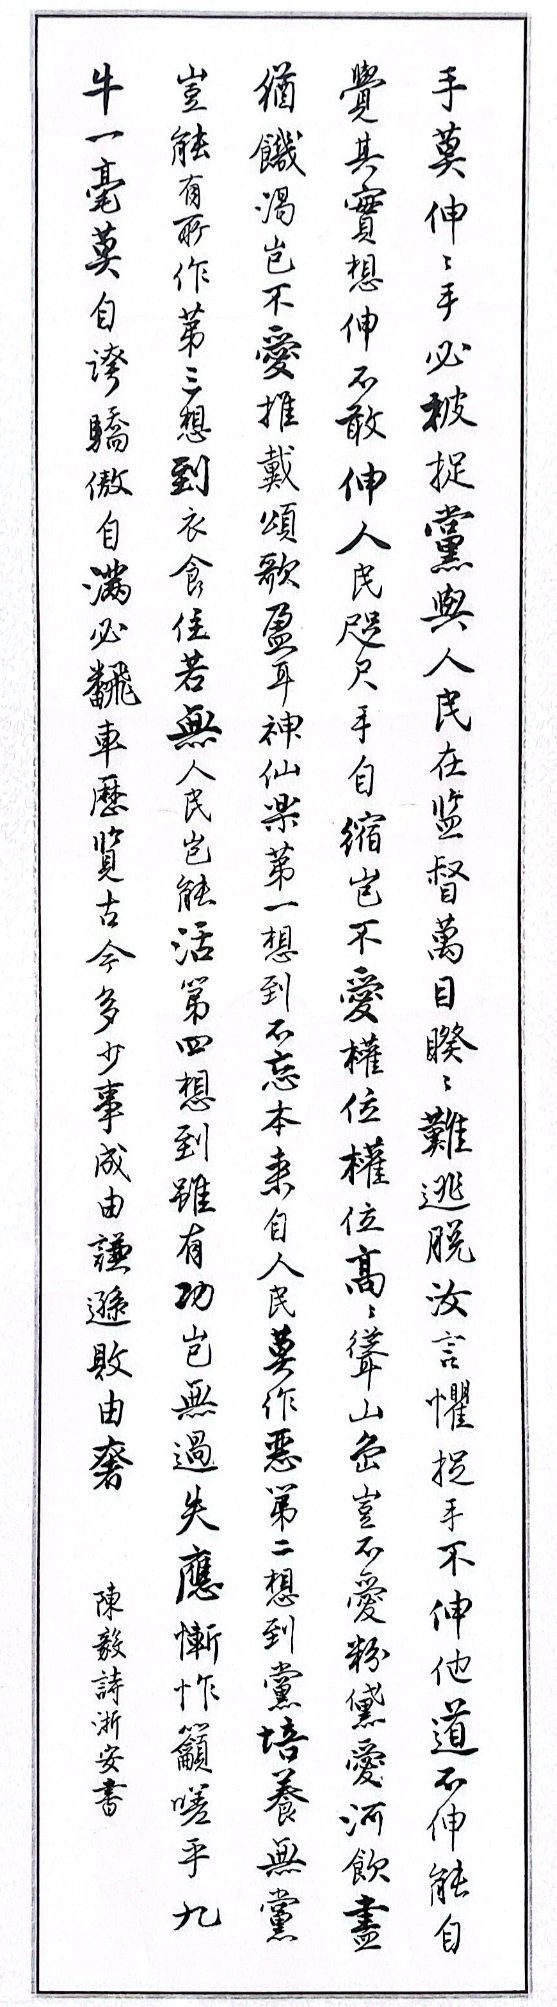 手莫伸〻手必被捉黨與人民在监督萬目睽〻難逃脱汝言懼捉手不伸他道不伸能自
覺其實想伸不敢伸人民咫尺手自縮岂不愛權位權位高〻聳山岳豈不愛粉黛愛河飲盡
猶饑渴岂不愛推戴頌歌盈耳神仙樂第一想到不忘本来自人民莫作惡第二想到黨培養無黨
豈能有所作第三想到衣食住若無人民岂能活第四想到雖有功岂無過失應慚怍籲嗟乎九
牛一毫莫自誇驕傲自滿必翻車歷覽古今多少事成由謙遜敗由奢
陳毅詩浙安書